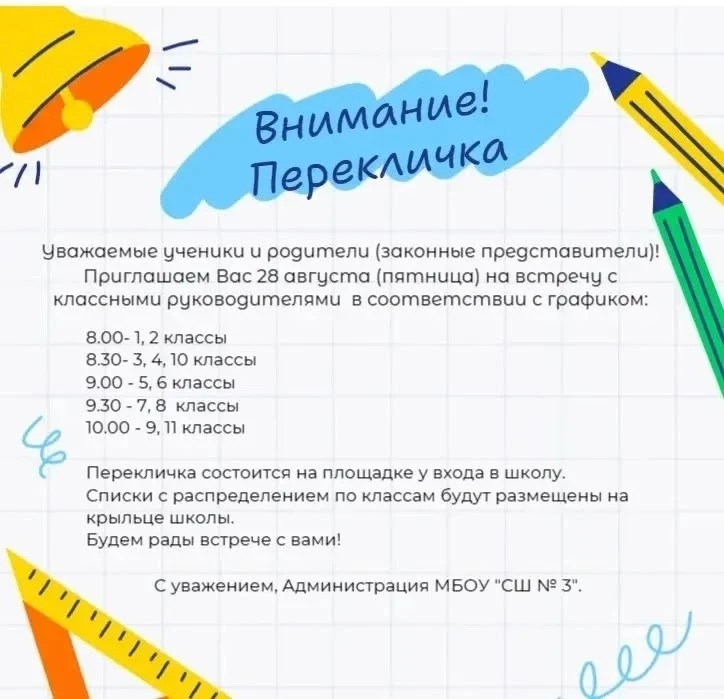 Внимание!
Перекличка
Уважаемые ученики и родители (законные представители)!
Приглашаем Вас 28 августа (пятница) на встречу с
классными руководителями в соответствии с графиком:
8.00- 1, 2 классы
8.30- 3, 4, 10 классы
9.00 - 5, 6 классы
9.30 - 7, 8 классы
10.00 - 9, 11 классы
Перекличка состоится на площадке у входа в школу.
Списки с распределением по классам будут размещены на
крыльце школы.
Будем рады встрече с вами!
С уважением, Администрация МБОУ "СШ № 3".